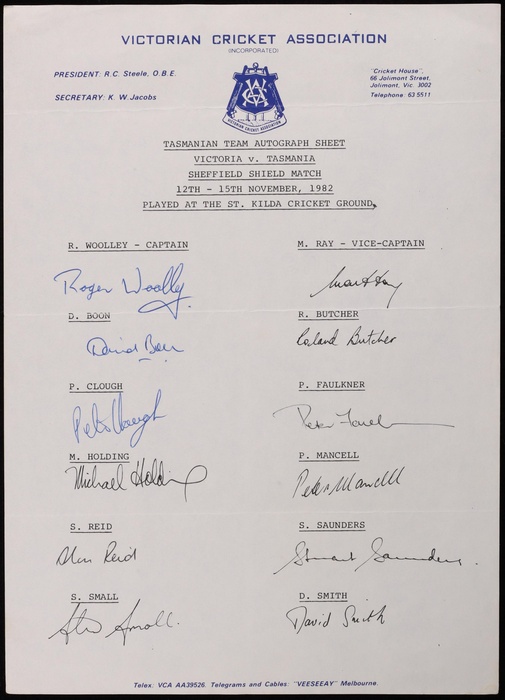 VICTORIAN CRICKET ASSOCIATION
(INCORPORATED)
PRESIDENT: R.C. Steele, O.B.E.
SECRETARY: K. W. Jacobs
"Cricket House",
66 Jolimont Street,
Jolimont, Vic. 3002
Telephone: 63 5511
VCA
VICTORIAN CRICKET ASSOCIATION
TASMANIAN TEAM AUTOGRAPH SHEET
VICTORIA v. TASMANIA
SHEFFIELD SHIELD MATCH
12TH - 15TH NOVEMBER, 1982
PLAYED AT THE ST. KILDA CRICKET GROUND.
R. WOOLLEY - CAPTAIN
M. RAY - VICE-CAPTAIN
Roger Woolley
Mark Ray
D. BOON
R. BUTCHER
David Boon
Roland Butcher
P. CLOUGH
P. FAULKNER
Peter Clough
Peter Faulkner
M. HOLDING
P. MANCELL
Michael Holding
Peter Mancell
S. REID
S. SAUNDERS
Alan Reid
Stuart Saunders.
S. SMALL
D. SMITH
Steve Small.
David Smith
Telex. VCA AA39526. Telegrams and Cables: "VEESEEAY" Melbourne.